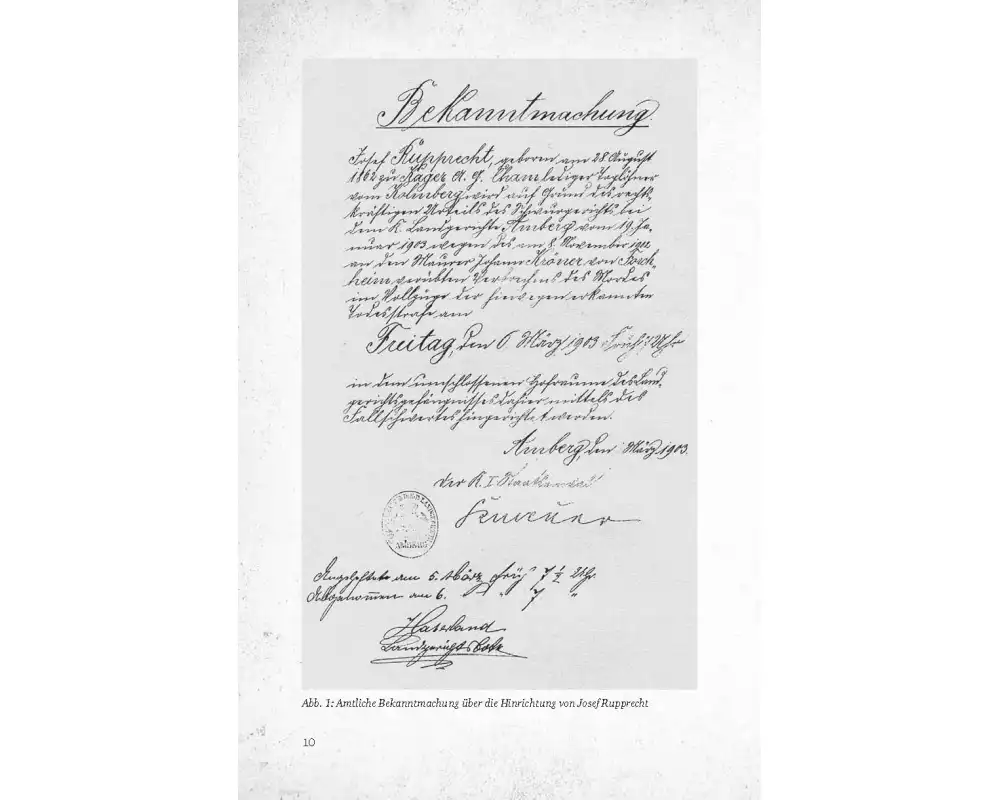 Bekanntmachung.
Josef Rupprecht, geboren am 28. August
1862 zu Kager A. G. Cham lediger Taglöhner
vom Kolmberg wird auf Grund des rechts-
kräftigen Urteils des Schwurgerichts bei
dem K. Landgerichte Amberg vom 19. Ja-
nuar 1903 wegen des am 8. November
an den Maurer Johann Kröner von
heim verübten Verbrechens des Mordes
im Vollzuge der hiewegen erkannten
Todesstrafe am
Freitag, den 6. März 1903 Früh 7 Uhr
in dem umschlossenen Hofraume des Land-
gerichtsgefängnisses dahier mittels des
Fallschwertes hingerichtet werden.
Amberg, den März 1903.
Der K. I. Staatsanwalt
AMBERG
Angeheftet am 5. März früh 7 ½ Uhr.
Abgenommen am 6. " " 7 "
Haserland
Landgerichtsbote
Abb. 1: Amtliche Bekanntmachung über die Hinrichtung von Josef Rupprecht
10